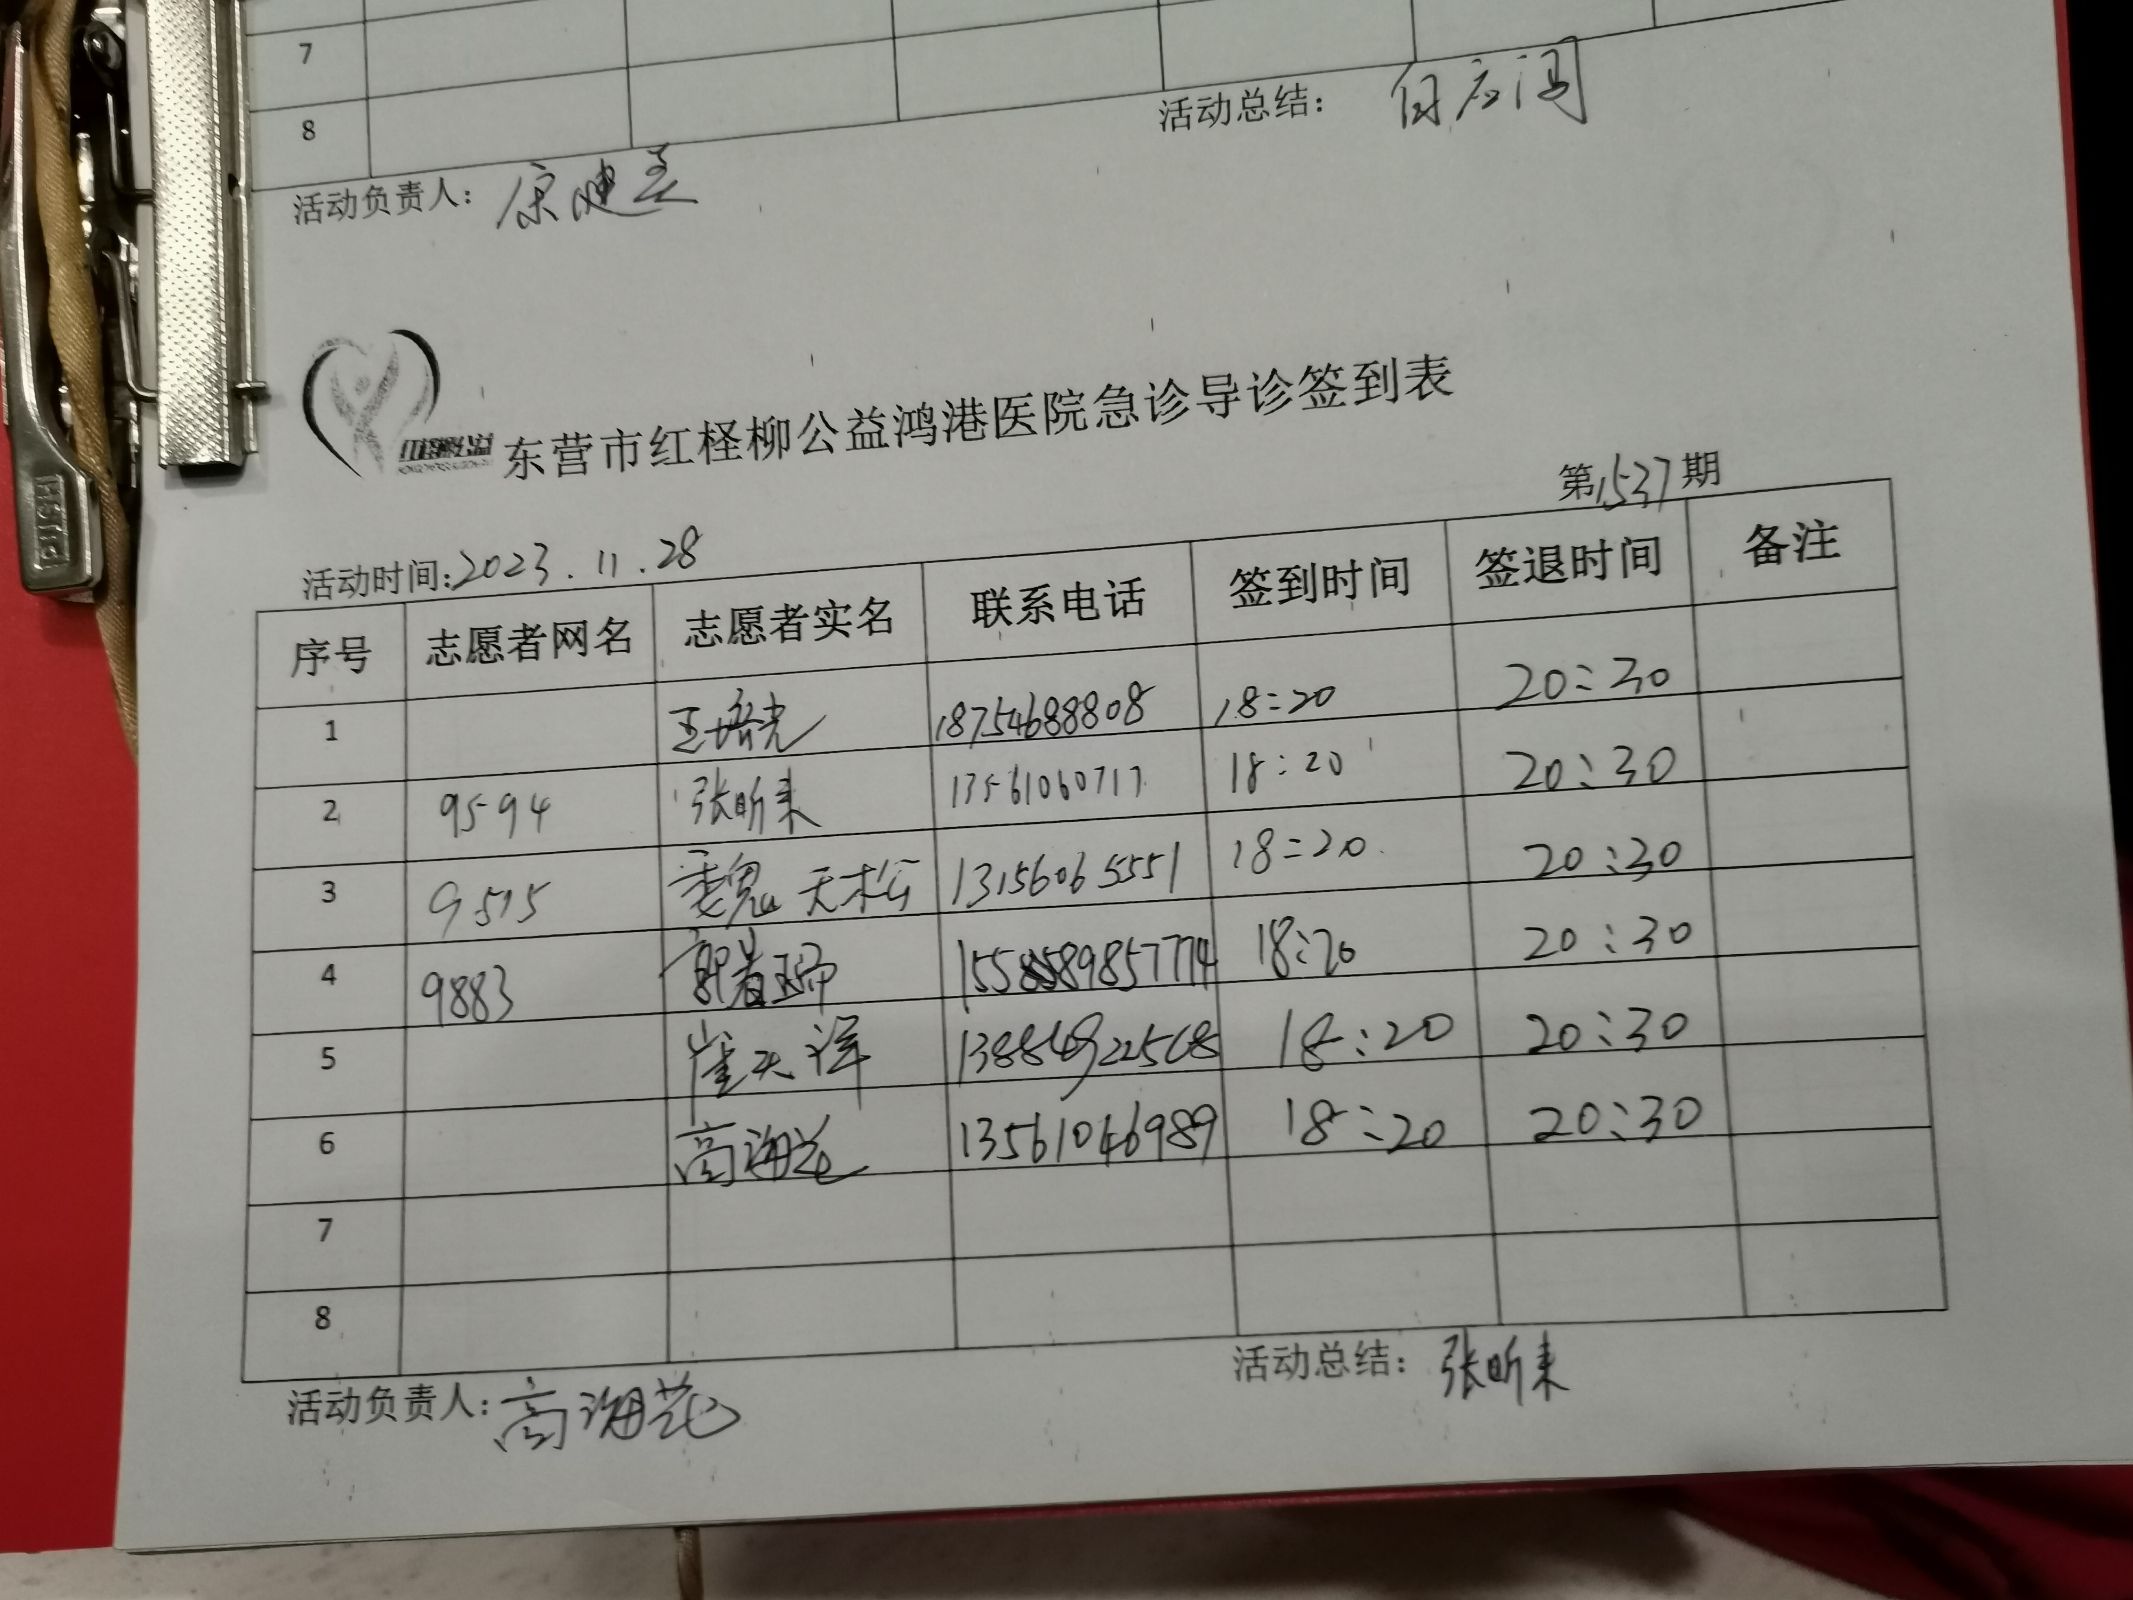 7
8
活动总结：
活动负责人：康健美
东营市红柽柳公益鸿港医院急诊导诊签到表
第1537期
活动时间:2023.11.28
序号 志愿者网名 志愿者实名 联系电话 签到时间 签退时间 备注
1 18754688808 18:20 20:30
2 9594 张昕来 13561060717 18:20 20:30
3 9515 魏天松 13156065551 18:20 20:30
4 9883 18:20 20:30
5 崔天祥 18:20 20:30
6 高海花 13561046989 18:20 20:30
7
8
活动负责人:高海花 活动总结：张昕来